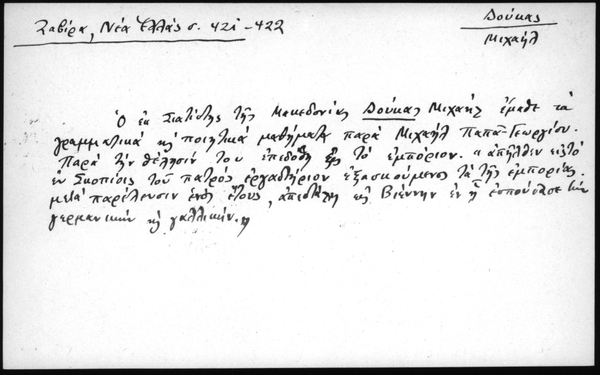 Ζαβίρα, Νέα Ἑλλάς σ. 421-422
Δούκας
Μιχαήλ
Ὁ ἐκ Σιατίστης τῆς Μακεδονίας Δούκας Μιχαήλ ἔμαθε τά
γραμματικά κ ποιητικά μαθήματα παρά Μιχαήλ Παπα-Γεωργίου.
Παρά τήν θέλησίν του ἐπεδόθη εἰς τό ἐμπόριον. "ἀπῆλθεν εἰς τό
ἐν Σκοπίοις τοῦ πατρός ἐργαστήριον ἐξασκούμενος τά τῆς ἐμπορίας.
μετά παρέλευσιν ἑνός ἔτους, ἀπεστάλη εἰς Βιέννην ἐν ᾗ ἐσπούδασε τήν
γερμανικήν κ γαλλικήν."